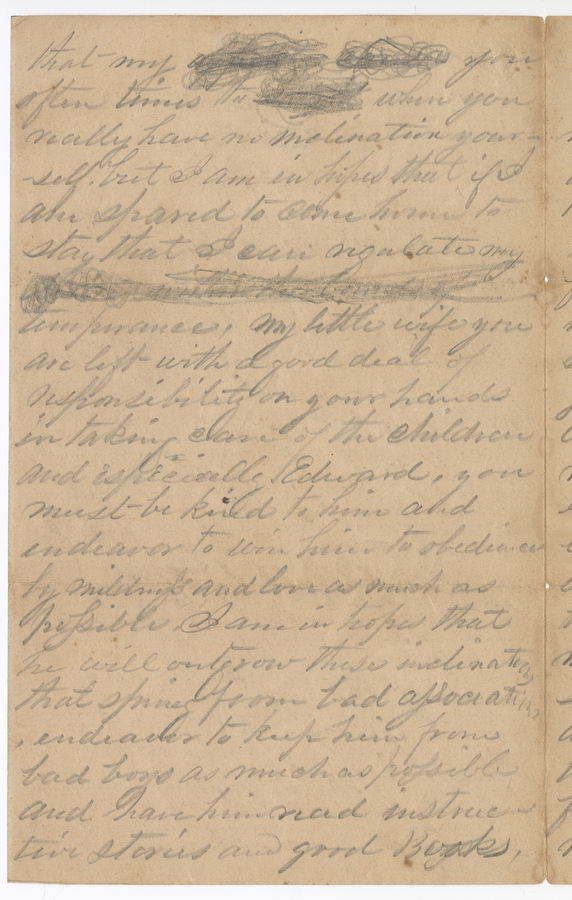 that my you
often times to when you
really have no inclination your-
-self. but I am in hopes that if I
am spared to come home to
stay that I can regulate my
within the bounds of
temperance, My little wife you
are left with a good deal of
responsibility on your hands
in taking care of the children
and especially Edward, you
must be kind to him and
endeavor to win him to obedience
by mildness and love as much as
possible. I am in hopes that
he will outgrow these inclinations
that spring from bad associations
, endeavor to keep him from
bad boys as much as possible
and have him read instruc-
tive stories and good Books,